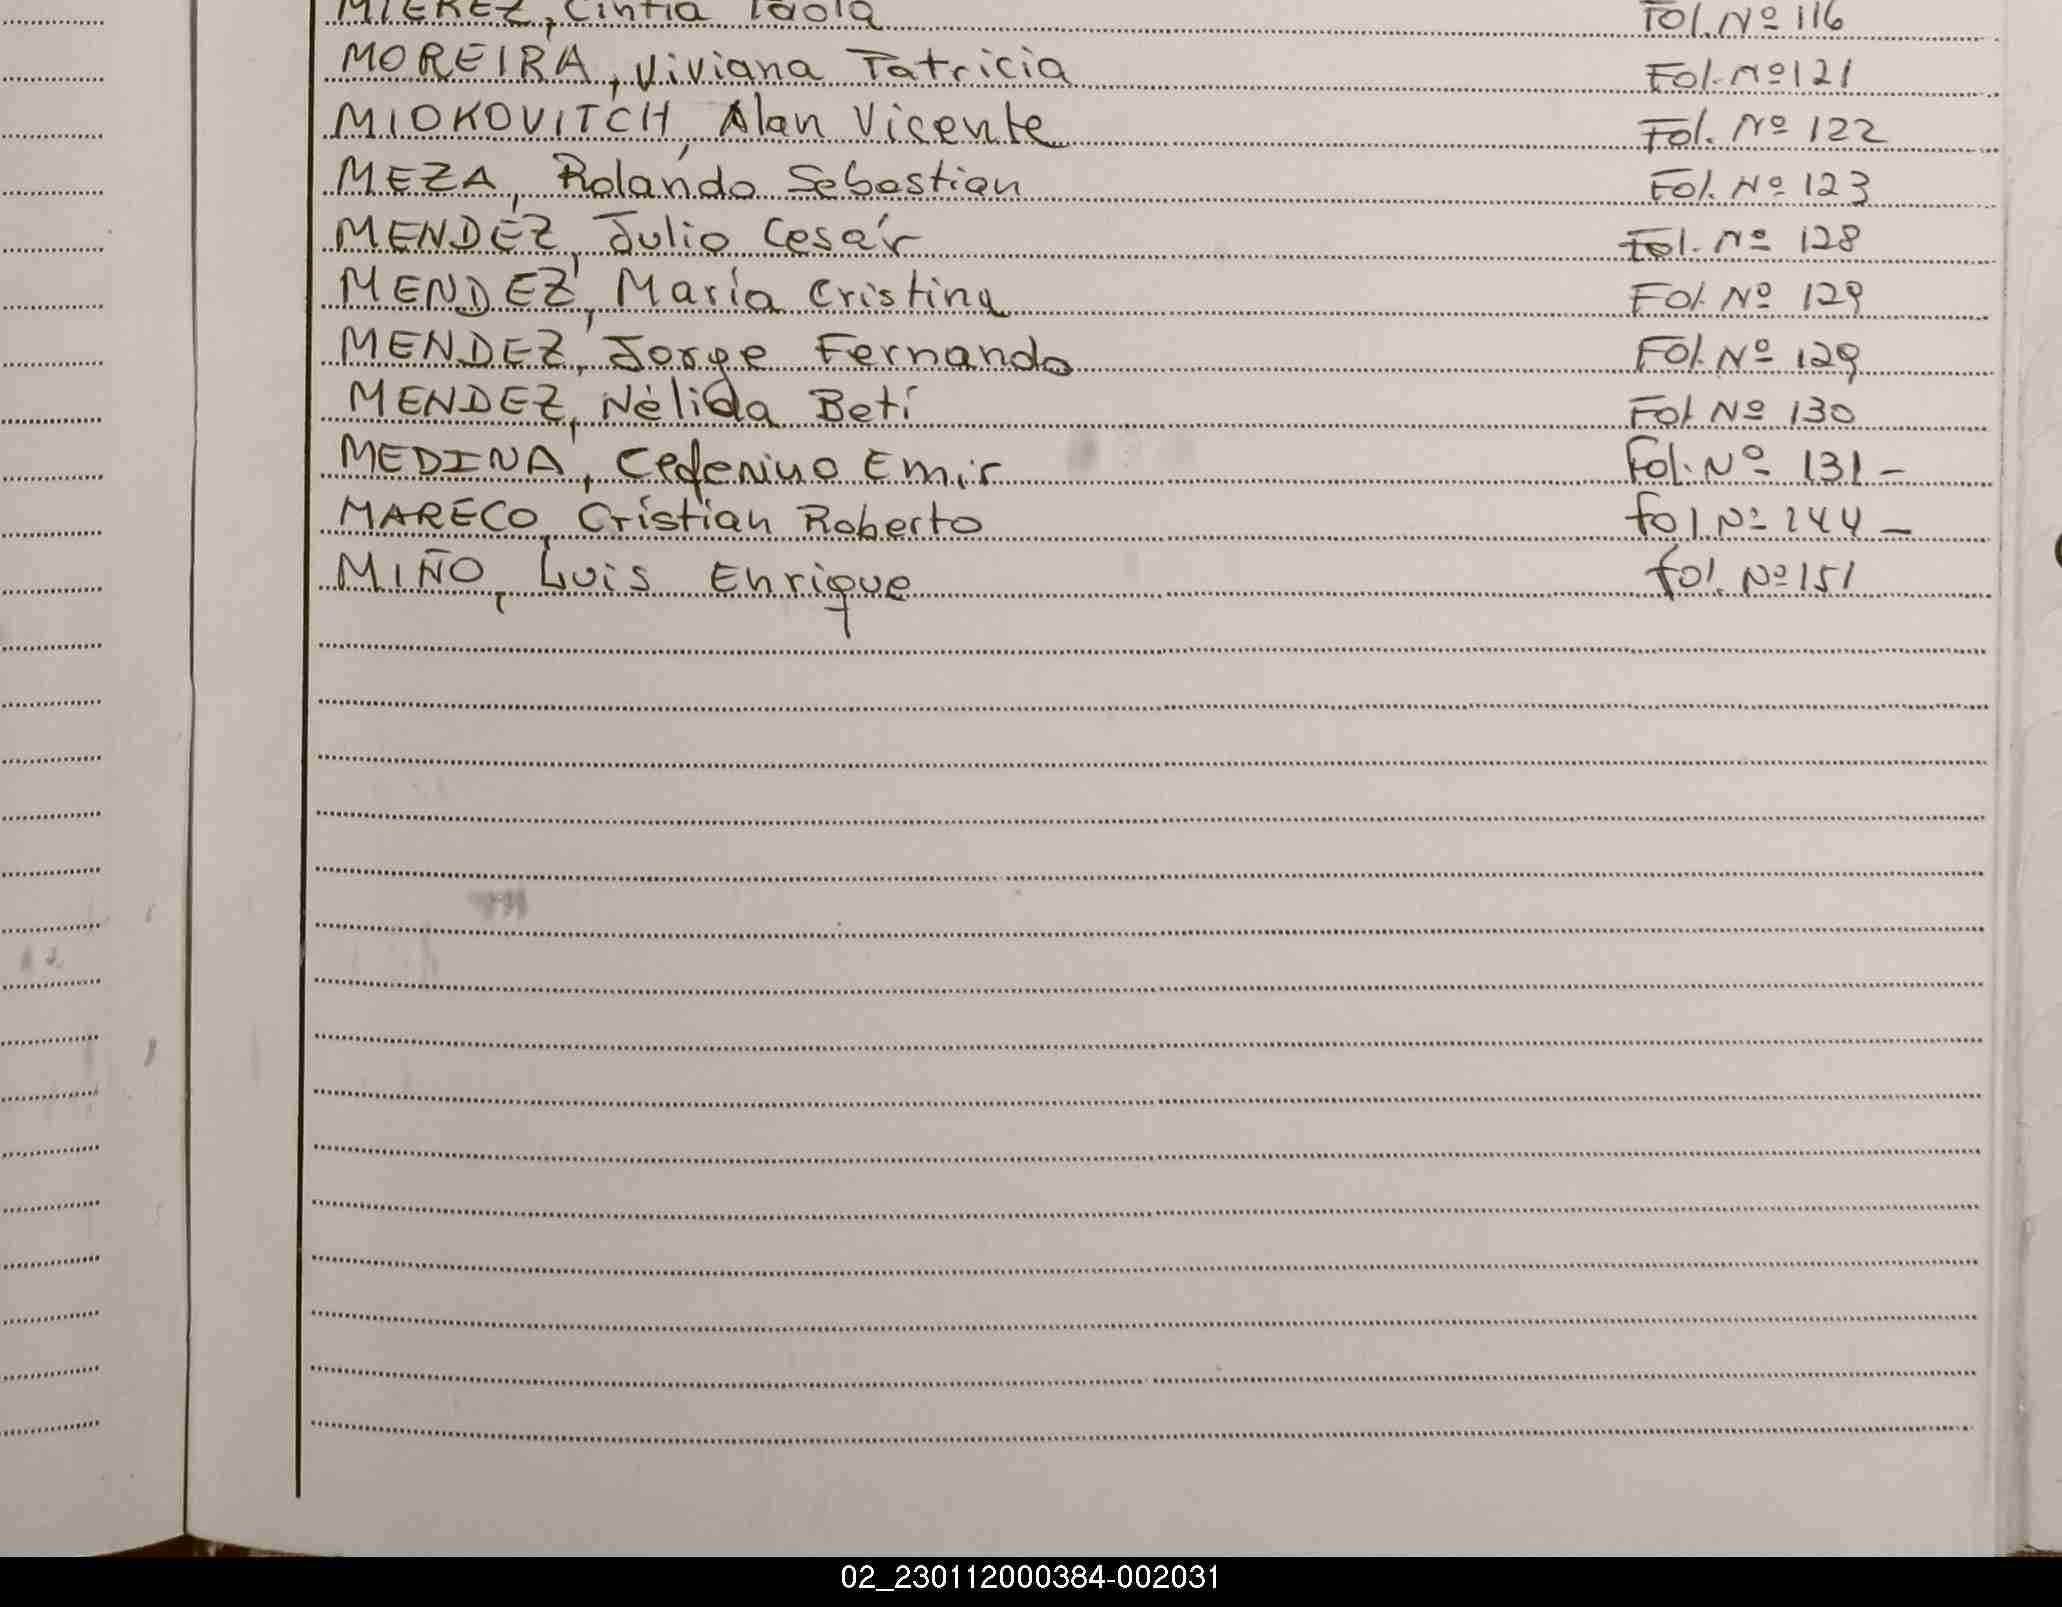 MIEREZ, Cintia Paola Fol. Nº 116
MOREIRA, Viviana Patricia Fol. Nº 121
MIOKOVITCH, Alan Vicente Fol. Nº 122
MEZA, Rolando Sebastian Fol. Nº 123
MENDEZ, Julio Cesár Fol. Nº 128
MENDEZ, María Cristina Fol. Nº 129
MENDEZ, Jorge Fernando Fol. Nº 129
MENDEZ, Nélida Betí Fol Nº 130
MEDINA, Emir Fol. Nº 131 -
MARECO, Cristian Roberto fol Nº 144 -
MIÑO, Luis Enrique fol. Nº 151
02_230112000384-002031